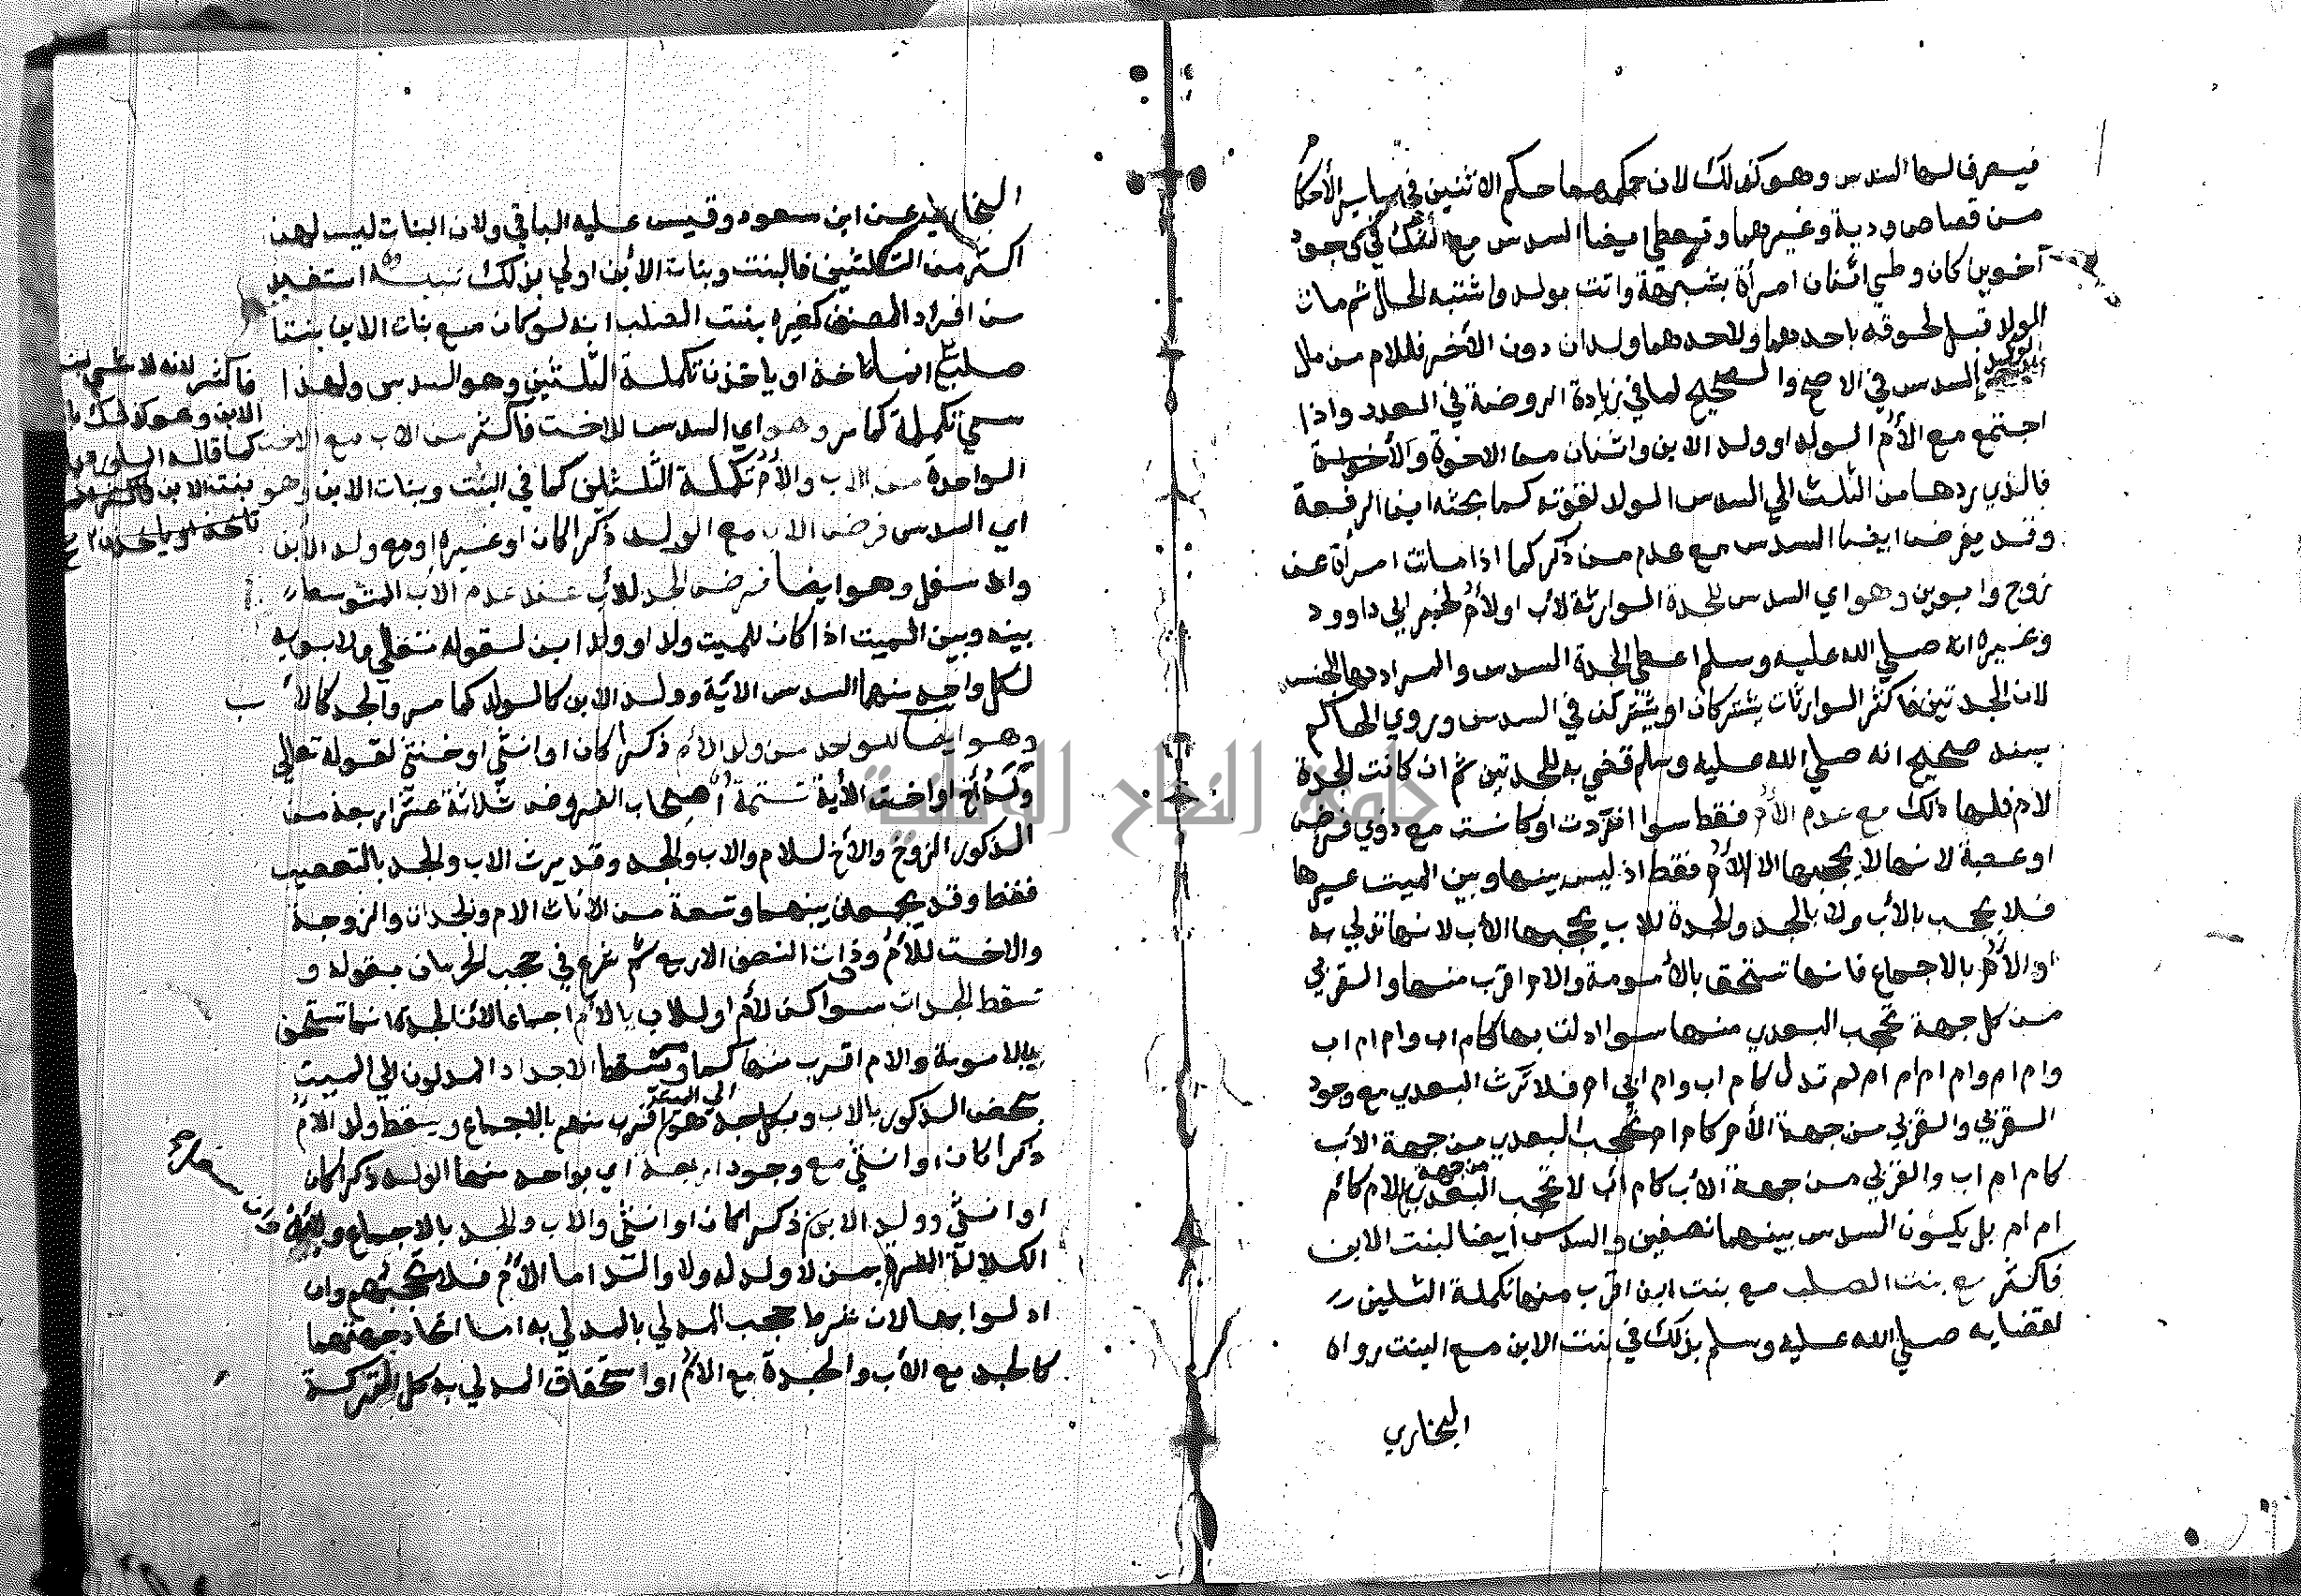 فيصرف لها السدس وهو كذلك لان حكمهما حكم الاثنين في ساير الأحكام
من قصاص ودية وغيرهما وتعطى ايضا السدس مع الشك في وجود
أخوين كان وطي اثنان امرأة بشبهة واتت بولد واشتبه الحال ثم مات
الولد قبل لحوقه باحدهما ولاحدهما ولدان دون الأخر فللام من مال
الولد السدس في الاصح والصحيح لما في زيادة الروضة في العدد واذا
اجتمع مع الأم الولد او ولد الابن واثنان من الاخوة والأخوات
فالذي ردها من الثلث الي السدس الولد لقوته كما بحثه ابن الرفعة
وقد يفرض ايضا السدس مع عدم من ذكر كما اذا ماتت امرأة عن
زوج وابوين وهو اي السدس للجدة الوارثة لأب او لأم لخبر ابي داوود
وغيره انه صلي الله عليه وسلم اعطى الجدة السدس والمراد بها الجنس
لان الجدتين فاكثر الوارثات يشتركان او يشتركن في السدس وروي الحاكم
بسند صحيح انه صلي الله عليه وسلم قضي به للجدتين ثم ان كانت الجدة
لام فلها ذلك مع عدم الأم فقط سوا انفردت او كانت مع ذوي فرض
او عصبة لانها لا يحجبها الا الأم فقط اذ ليس بينها وبين الميت غيرها
فلا يحجب بالأب ولا بالجد والجدة للاب يحجبها الأب لانها تدلي به
او الأم بالاجماع فانها تستحق بالأمومة والام اقرب منها والقربي
من كل جهة تحجب البعدي منها سوا ادلت بها كام اب وام ام اب
وام ام وام ام ام ام لم تدل كام اب وام ابي ام فلا ترث البعدي مع وجود
القربي والقربي من جهة الأم كام ام تحجب البعدي من جهة الأب
كام ام اب والقربي من جهة الأب كام اب لا تحجب البعدي من جهة الام كام
ام ام بل يكون السدس بينهما نصفين والسدس ايضا لبنت الابن
فاكثر مع بنت الصلب مع بنت ابن اقرب منها تكملة الثلثين
لقضايه صلي الله عليه وسلم بذلك في بنت الابن مع البنت رواه
البخاري
البخاري عن ابن مسعود وقيس عليه الباقي ولان البنات ليس لهن
اكثر من الثلثين فالبنت وبنات الأبن اولي بذلك تنبيه استفيد
من افراد المصنف كغيره بنت الصلب انه لو كان مع بنات الابن بنتا
صلب انما تاخذ او ياخذن تكملة الثلثين وهو السدس ولهذا
سمي تكملة كما مر وهو اي السدس للاخت فاكثر من الاب مع الاخت
الواحدة من الاب والأم تكملة الثلثين كما في البنت وبنات الابن وهو
اي السدس فرض الاب مع الولد ذكرا كان او غيره او مع ولد الأبن
وان سفل وهو ايضا فرض الجد للأب عند عدم الأب المتوسط
بينه وبين الميت اذا كان للميت ولد او ولد ابن لقوله تعالي ولابويه
لكل واحد منهما السدس الأية وولد الابن كالولد كما مر والجد كالأب
وهو ايضا للواحد من ولد الأم ذكرا كان او انثي او خنثي لقوله تعالي
وله أخ او اخت الأية تتمة أصحاب الفروض ثلاثة عشر اربعة من
الذكور الزوج والأخ للام والاب والجد وقد يرث الاب والجد بالتعصيب
فقط وقد يجمعان بينهما وتسعة من الاناث الام والجدات والزوجة
والاخت للأم وذات النصف الاربع ثم شرع في حجب الحرمان بقوله و
تسقط الجدات سوا كن لأم او للاب بالأم اجماعا لأن الجدة انما تستحق
بالامومة والام اقرب منها كما وتسقط الاجداد المدلون الي الميت
بمحض الذكور بالاب وبكل جد هو الي الميت اقرب منهم بالاجماع ويسقط ولد الأم
ذكرا كان او انثي مع وجود اربعة اي بواحد منها الولد ذكرا كان
او انثي وولد الابن ذكرا كان او انثي والأب والجد بالاجماع
الكلالة المفسرة بمن لا ولد له ولا والد اما الأم فلا تحجبهم وان
ادلوا بها لان شرط حجب المدلي بالمدلي به اما اتحاد جهتهما
كالجد مع الأب والجدة مع الأم او استحقاق المدلي به كل التركة
فاكثر لانه لا
الابن وهو كذلك
كما قاله
بنت الابن فاكثر
تاخذ او ياخذن
جامعة النجاح الوطنية